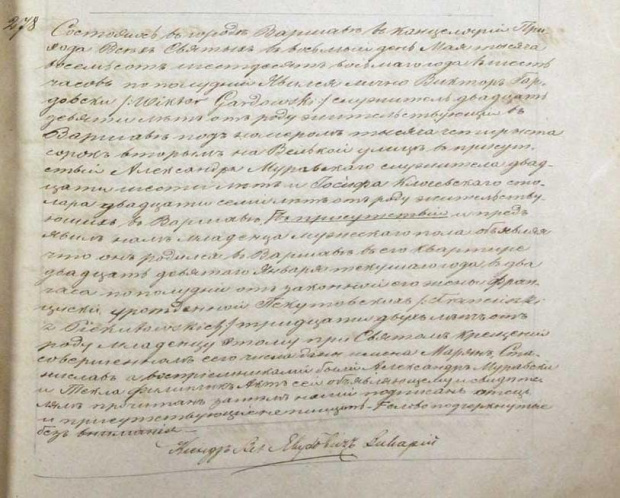 278
Состоялось въ городѣ Варшавѣ въ Канцеляріи При-
хода Всѣхъ Святыхъ въ восьмой день Мая тысяча
восемьсотъ шестьдесятъ восьмаго года въ шесть
часовъ по полудни Явился лично Викторъ Гар-
довски /:Wiktor Gardowski:/ служитель двадцать
девяти лѣтъ отъ роду жительствующій въ
Варшавѣ подъ номеромъ тысяча четыреста
сорокъ вторымъ на Велькой улицѣ въ присут-
ствіи Александра Муравскаго служителя двад-
цати шести лѣтъ и Іосифа Клосевскаго сто-
ляра двадцати семи лѣтъ отъ роду жительству-
ющихъ въ Варшавѣ, въ присутствіи и предъ-
явилъ намъ младенца мужескаго пола объявляя
что онъ родился въ Варшавѣ въ его квартирѣ
двадцать девятаго Января текущаго года въ два
часа по полудни отъ законной его жены Фран-
циски урожденной /:Franciszki
z тридцати двухъ лѣтъ отъ
роду Младенцу этому при Святомъ Крещеніи
совершенномъ сего числа даны имена Марянъ Ста-
ниславъ а воспріемниками были Александръ Муравски
и Текла Филипчикъ Актъ сей объявляющему и свидѣте-
лямъ прочитанъ затѣмъ нами подписанъ отецъ
и присутствующіе не пишутъ Слово подчеркнутые
безъ вниманія
Ксендзъ Викарій